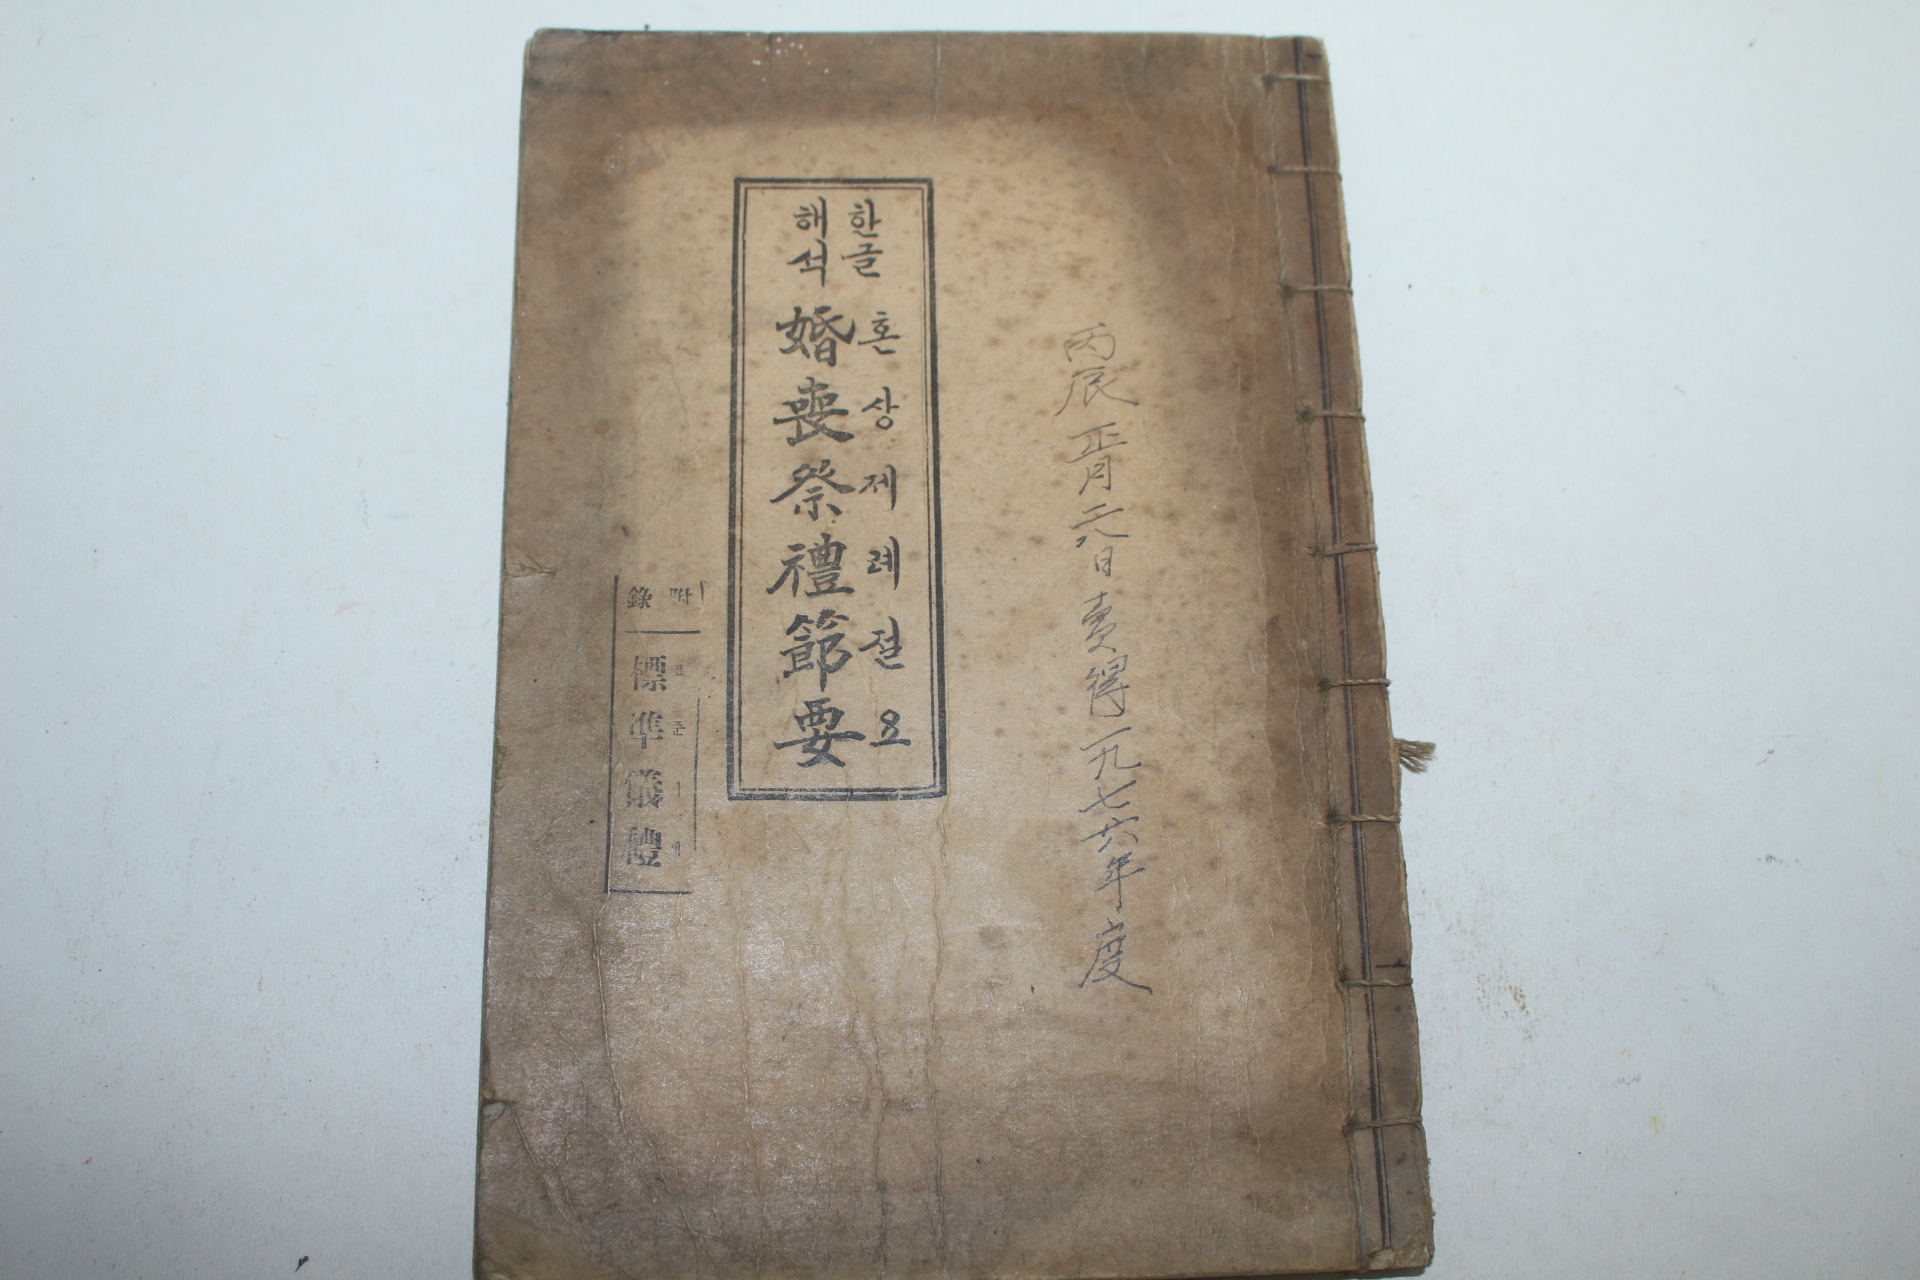 丙辰 正月 六日 賣得 一九七六年度
한글
해석
혼상제례절요
婚喪祭禮節要
附錄
標準儀禮